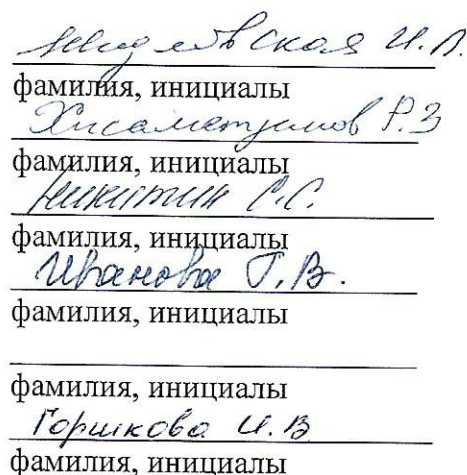 И.Л.
фамилия, инициалы
Хисаметдинов Р.З
фамилия, инициалы
Никитин С.С.
фамилия, инициалы
Иванова Г.В.
фамилия, инициалы
фамилия, инициалы
Горшкова И.В
фамилия, инициалы